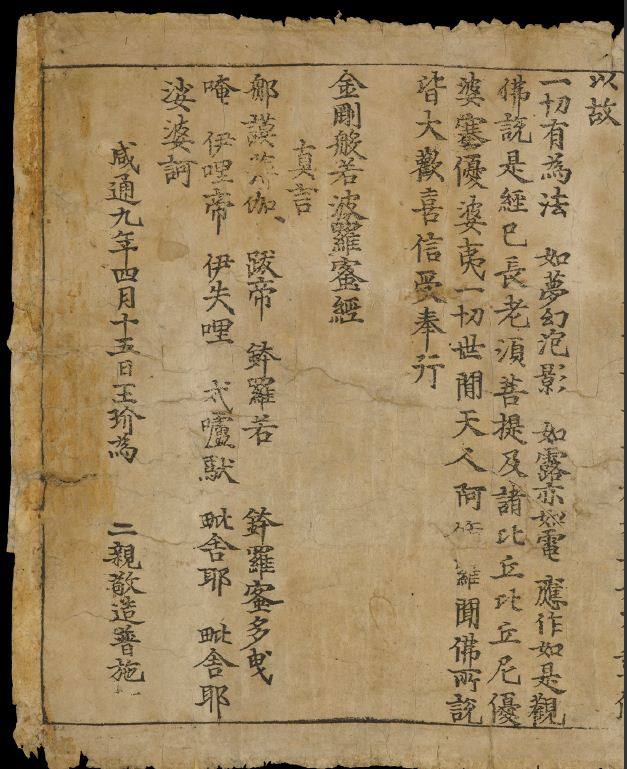 以故
一切有為法 如夢幻泡影 如露亦如電 應作如是觀
佛說是經已長老湏菩提及諸比丘比丘尼優
婆塞優婆夷一切世間天人阿脩羅聞佛所說
皆大歡喜信受奉行
金剛般若波羅蜜經
真言
那謨薄伽、 跋帝 鉢羅若 鉢羅蜜多曳
唵 伊哩帝 伊失哩 戍嚧馱 毗舍耶 毗舍耶
娑婆訶
咸通九年四月十五日王玠為 二親敬造普施